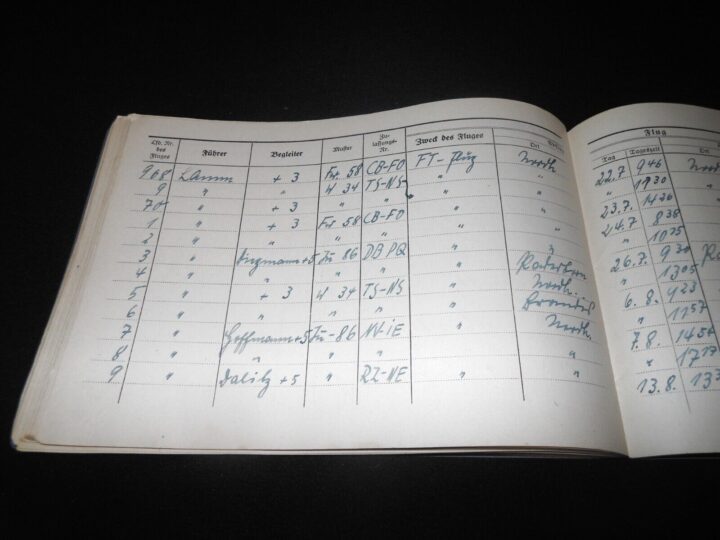 Lfd. Nr. des Fluges Führer Begleiter Muster Zulassungs-Nr. Zweck des Fluges Ort Flug Tag Tageszeit Ort
968 Lamm + 3 Fw. 58 CB-FO FT-Flug Nordh. 22.7. 946
9 " " W 34 TS-NS " " " 1130
70 " + 3 " " " " 23.7. 1426
1 " + 3 Fw. 58 CB-FO " " 24.7. 838
2 " " " " " " " 1025
3 " +5 Ju 86 DB PQ " " 26.7. 930
4 " " " " " " 1305
5 " + 3 W 34 TS-NS " Nordh. 6.8. 923
6 " " " " " " 1157
7 " Hoffmann +5 Ju-86 NV-IE " Nordh. 7.8.
8 " " " " " " "
9 " Dalitz +5 " RZ-NE " " 13.8.